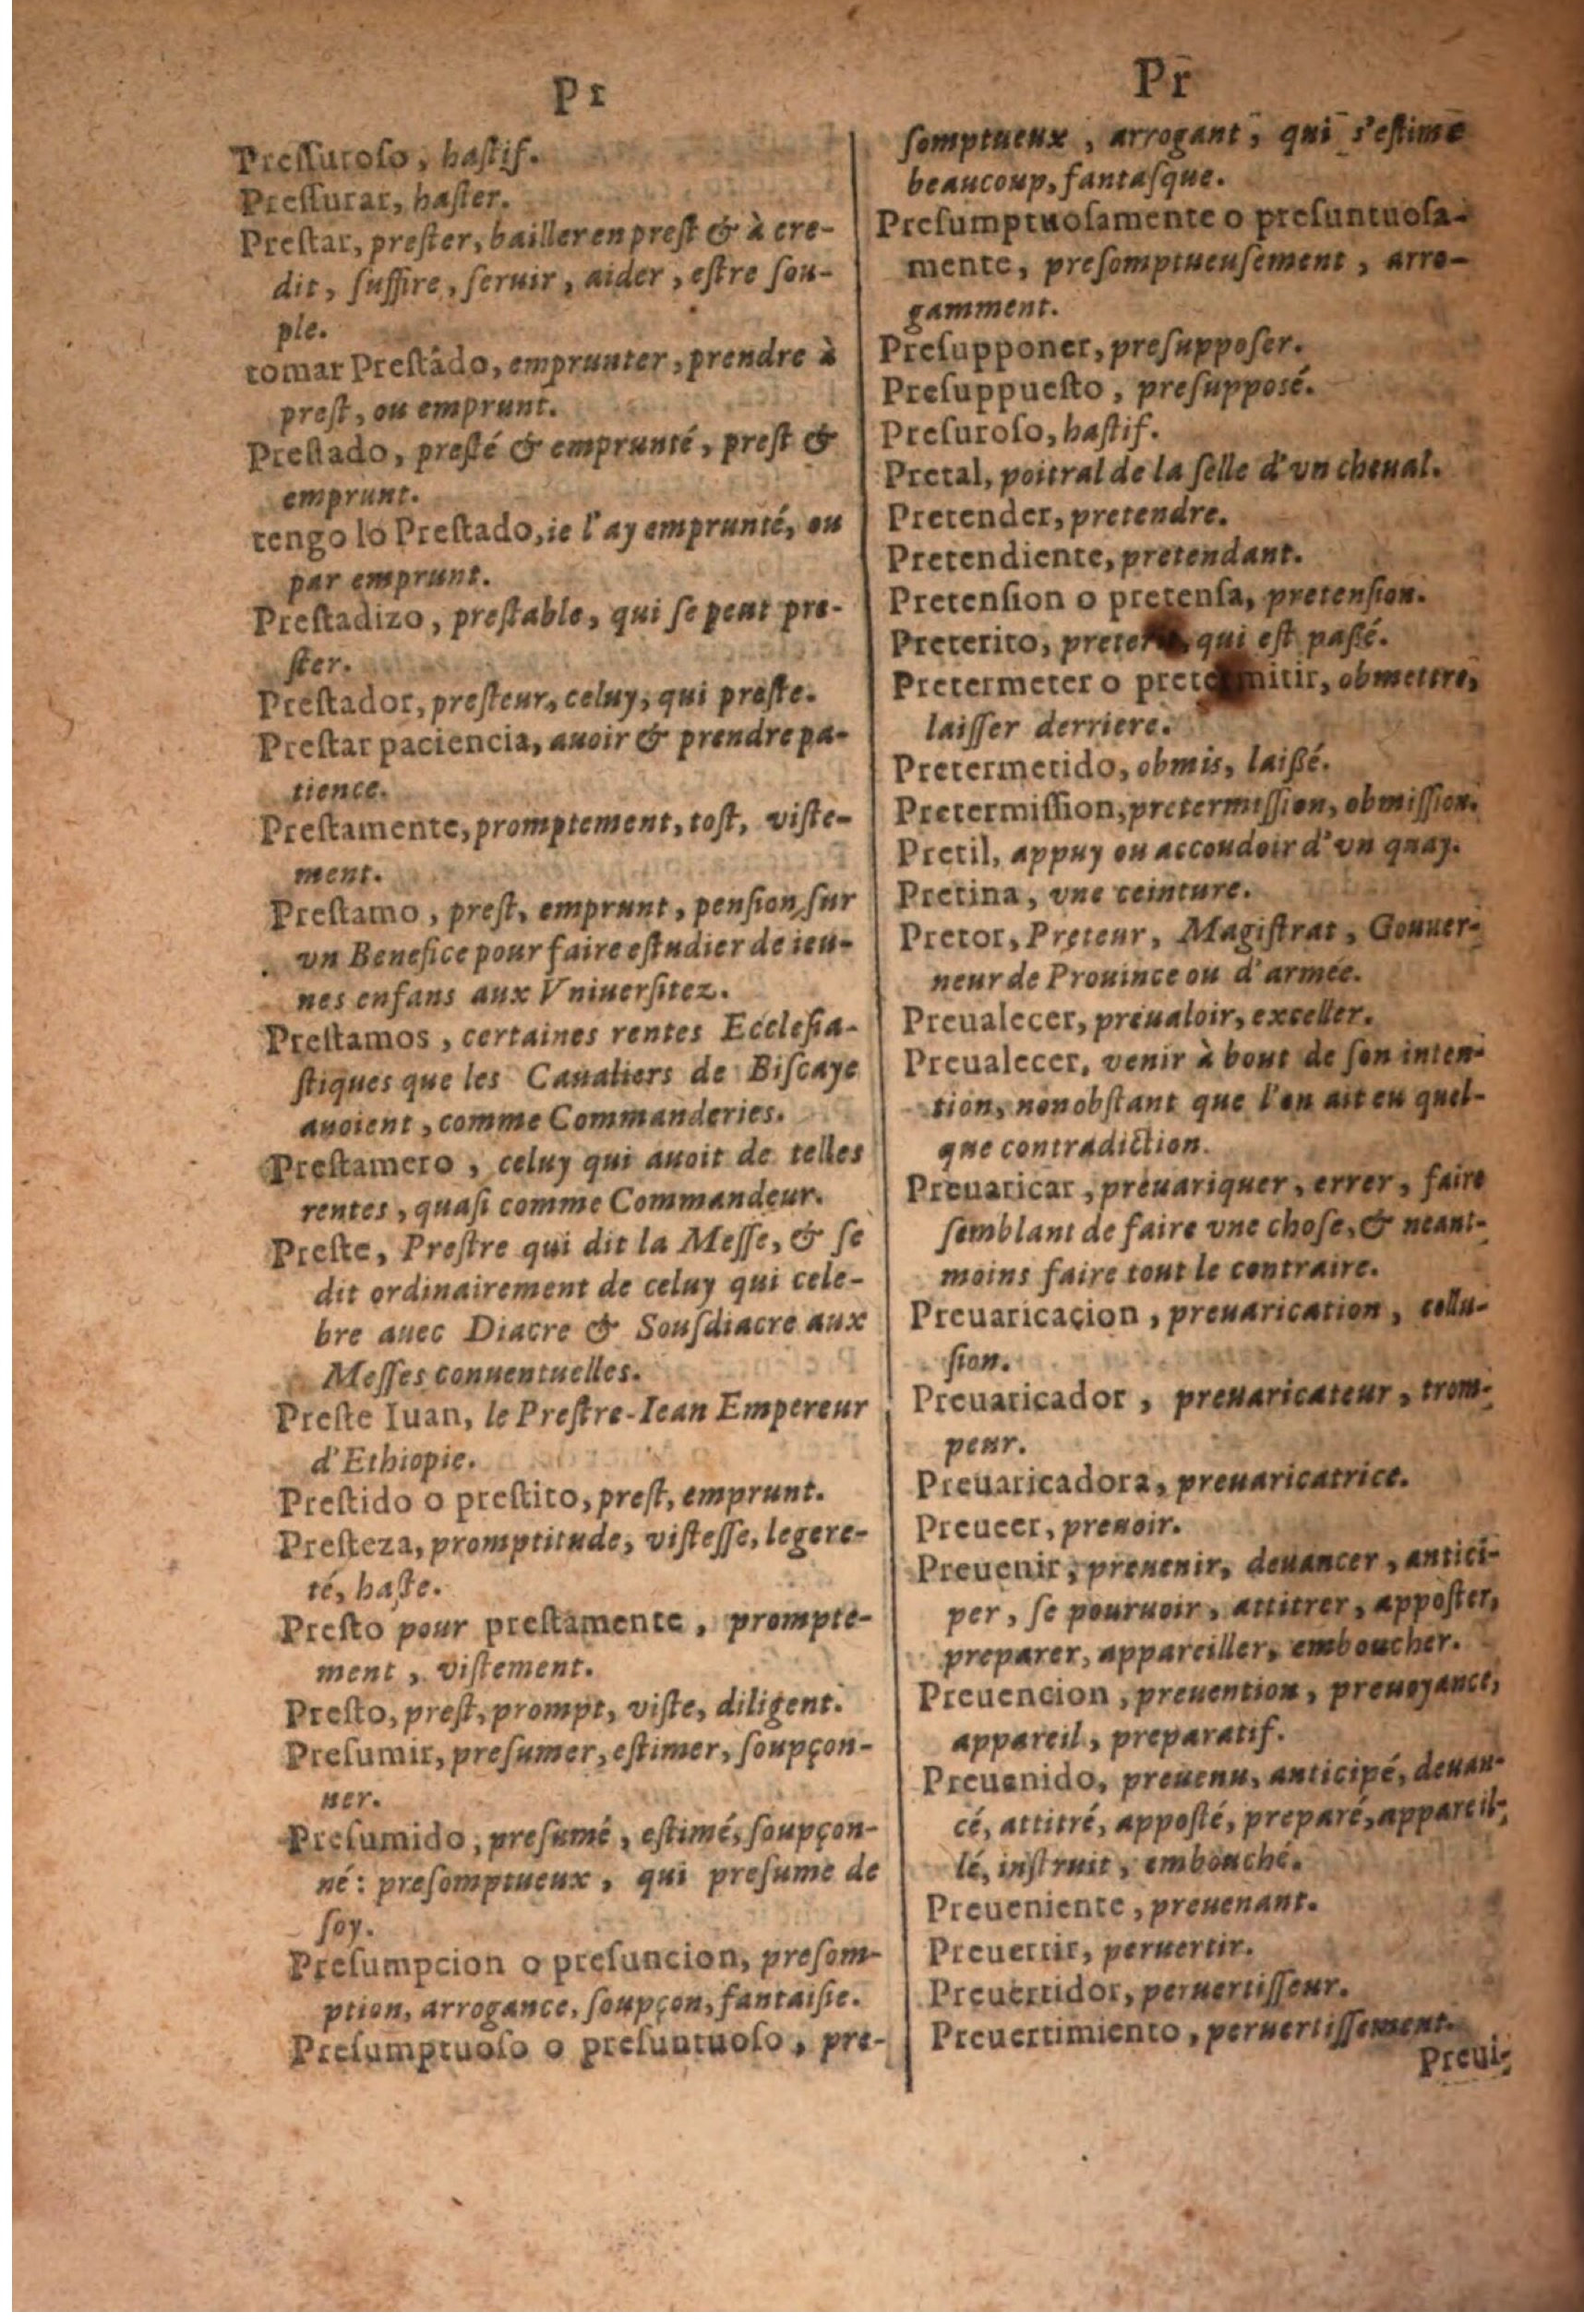 Pr
Preſſuroſo, haſtif.
Preſſurar, haſter.
Preſtar, preſter, bailler en preſt & à cre-
dit, ſuffire, ſeruir, aider, eſtre ſou-
ple.
tomar Preſtàdo, emprunter, prendre à
preſt, ou emprunt.
Preſtado, preſté & emprunté, preſt &
emprunt.
tengo lo Preſtado, ie l'ay emprunté, ou
par emprunt.
Preſtadizo, preſtable, qui ſe peut pre-
ſter.
Preſtador, preſteur, celuy, qui preſte.
Preſtar paciencia, auoir & prendre pa-
tience.
Preſtamente, promptement, toſt, viſte-
ment.
Preſtamo, preſt, emprunt, penſion ſur
vn Benefice pour faire eſtudier de ieu-
nes enfans aux Vniuerſitez.
Preſtamos, certaines rentes Eccleſia-
ſtiques que les Caualiers de Biſcaye
auoient, comme Commanderies.
Preſtamero, celuy qui auoit de telles
rentes, quaſi comme Commandeur.
Preſte, Preſtre qui dit la Meſſe, & ſe
dit ordinairement de celuy qui cele-
bre auec Diacre & Souſdiacre aux
Meſſes conuentuelles.
Preſte Iuan, le Preſtre-Iean Empereur
d'Ethiopie.
Preſtido o preſtito, preſt, emprunt.
Preſteza, promptitude, viſteſſe, legere-
té, haſte.
Preſto pour preſtamente, prompte-
ment, viſtement.
Preſto, preſt, prompt, viſte, diligent.
Preſumir, preſumer, eſtimer, ſoupçon-
ner.
Preſumido, preſumé, eſtimé, ſoupçon-
né: preſomptueux, qui preſume de
ſoy.
Preſumpcion o preſuncion, preſom-
ption, arrogance, ſoupçon, fantaiſie.
Preſumptuoſo o preſuntuoſo, pre-
Pr
ſomptueux, arrogant, qui s'eſtime
beaucoup, fantaſque.
Preſumptuoſamente o preſuntuoſa-
mente, preſomptueuſement, arro-
gamment.
Preſupponer, preſuppoſer.
Preſuppueſto, preſupposé.
Preſuroſo, haſtif.
Pretal, poitral de la ſelle d'vn cheual.
Pretender, pretendre.
Pretendiente, pretendant.
Pretenſion o pretenſa, pretenſion.
Preterito, qui eſt paßé.
Pretermeter o pretermitir, obmettre,
laiſſer derriere.
Pretermetido, obmis, laißé.
Pretermiſſion, pretermiſſion, obmiſſion.
Pretil, appuy ou accoudoir d'vn quay.
Pretina, vne ceinture.
Pretor, Preteur, Magiſtrat, Gouuer-
neur de Prouince ou d'armée.
Preualecer, preualoir, exceller.
Preualecer, venir à bout de ſon inten-
tion, nonobſtant que l'on ait eu quel-
que contradiction.
Preuaricar, preuariquer, errer, faire
ſemblant de faire vne choſe, & neant-
moins faire tout le contraire.
Preuaricaçion, preuarication, collu-
ſion.
Preuaricador, preuaricateur, trom-
peur.
Preuaricadora, preuaricatrice.
Preueer, preuoir.
Preuenir, preuenir, deuancer, antici-
per, ſe pouruoir, attitrer, appoſter,
preparer, appareiller, emboucher.
Preuencion, preuention, preuoyance,
appareil, preparatif.
Preuenido, preuenu, anticipé, deuan-
cé, attitré, appoſté, preparé, appareil-
lé, inſtruit, embouché.
Preueniente, preuenant.
Preuertir, peruertir.
Preuertidor, peruertiſſeur.
Preuertimiento, peruertiſſement.
Preui-